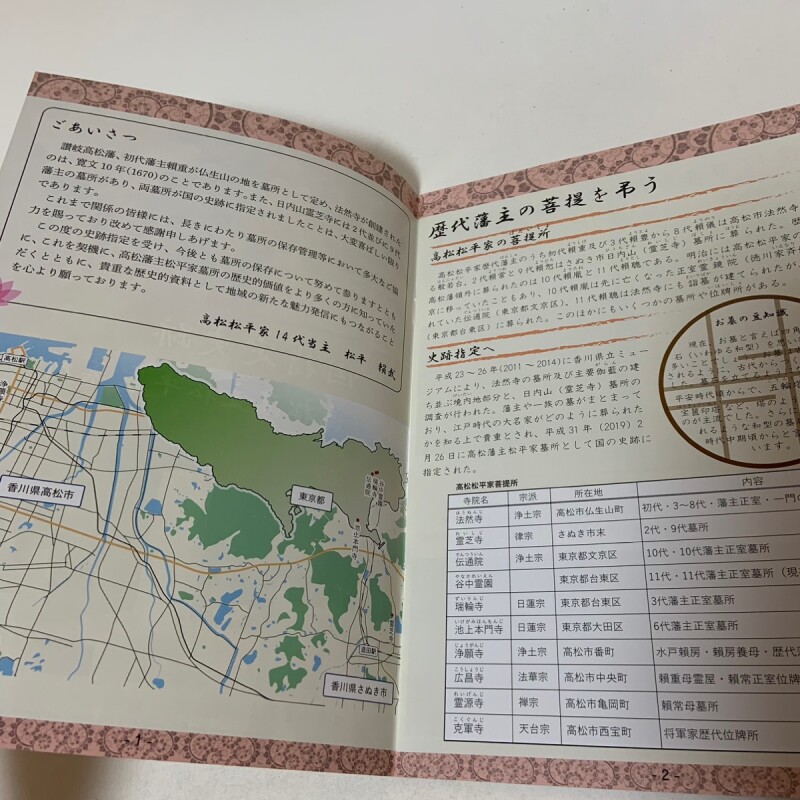 ごあいさつ
讃岐高松藩、初代藩主頼重が仏生山の地を墓所として定め、法然寺が創建された
のは、寛文10年(1670)のことであります。また、日内山霊芝寺には2代並びに9代
藩主の墓所があり、両墓所が国の史跡に指定されましたことは、大変喜ばしい限り
であります。
これまで関係の皆様には、長きにわたり墓所の保存管理等において多大なご協
力を賜っており改めて感謝申しあげます。
この度の史跡指定を受け、今後とも墓所の保存について努めて参りますととも
に、これを契機に、高松藩主松平家墓所の歴史的価値をより多くの方に知っていた
だくとともに、貴重な歴史的資料として地域の新たな魅力発信にもつながること
を心より願っております。
高松松平家14代当主 松平 頼武
高松駅
香川県高松市
東京都
谷中霊園
瑞輪寺
伝通院
池上本門寺
志度駅
香川県さぬき市
- 1 -
歴代藩主の菩提を弔う
高松松平家の菩提所
高松松平家歴代藩主のうち初代頼重及び3代頼豊から8代頼儀は高松市法然寺
る般若台、2代頼常と9代頼恕はさぬき市日内山(霊芝寺)墓所に葬
高松藩領外に葬られたのは10代頼胤と11代頼聰である。明治に
京に移っていたこともあり、10代頼胤は先に亡くなった正室
れていた伝通院(東京都文京区)、11代頼聰は法然寺にも詣墓が建てられたが
(東京都台東区)に葬られた。このほかにもいくつかの墓所や位牌所がある。
史跡指定へ
平成23~26年(2011~2014)に香川県立ミュー
ジアムにより、法然寺の墓所及び主要伽藍の建
ち並ぶ境内地部分と、日内山(霊芝寺)墓所の
調査が行われた。藩主や一族の墓がまとまって
おり、江戸時代の大名家がどのように葬られた
かを知る上で貴重とされ、平成31年(2019)2
月26日に高松藩主松平家墓所として国の史跡に
指定された。
お墓の豆知識
現在、お墓と言えば四角
石(いわゆる和型)を思い
平安時代頃から、五輪
宝篋印塔など、塔のよ
のが主流でした。さらに
れるような和型の墓
時代中期頃からと言
います。
高松松平家菩提所
寺院名 宗派 所在地 内容
法然寺 浄土宗 高松市仏生山町 初代・3~8代・藩主正室・一門
霊芝寺 律宗 さぬき市末 2代・9代墓所
伝通院 浄土宗 東京都文京区 10代・10代藩主正室墓所
谷中霊園 東京都台東区 11代・11代藩主正室墓所(現
瑞輪寺 日蓮宗 東京都台東区 3代藩主正室墓所
池上本門寺 日蓮宗 東京都大田区 6代藩主正室墓所
浄願寺 浄土宗 高松市番町 水戸頼房・頼房養母・歴代
広昌寺 法華宗 高松市中央町 頼重母霊屋・頼常正室位牌
霊源寺 禅宗 高松市亀岡町 頼常母墓所
克軍寺 天台宗 高松市西宝町 将軍家歴代位牌所
- 2 -